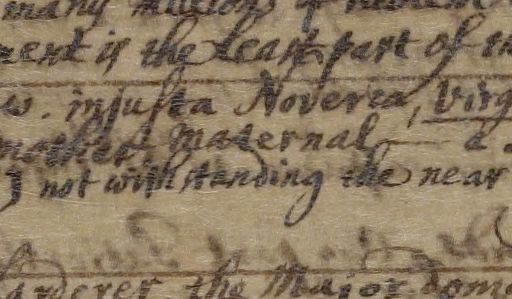 many millions of
ment is the least part of
injusta Noverca, Virg
mother, maternal a
not withstanding the near
arderer the Major dome